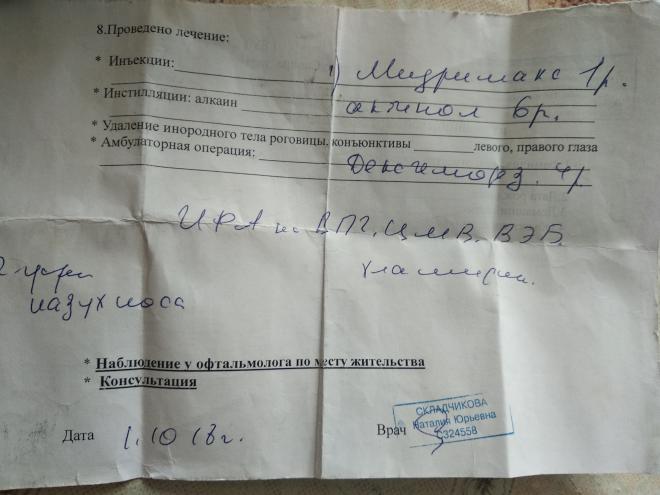 8.Проведено лечение:
* Инъекции: 1) Мидримакс 1р.
* Инстилляции: алкаин актинол 6р.
* Удаление инородного тела роговицы, конъюнктивы левого, правого глаза
* Амбулаторная операция:
4р.
ИФА на ВПГ, ЦМВ, ВЭБ,
хламидии.
пазух носа
* Наблюдение у офтальмолога по месту жительства
* Консультация
СКЛАДЧИКОВА
Наталия Юрьевна
С324558
Дата 1.10.18г. Врач